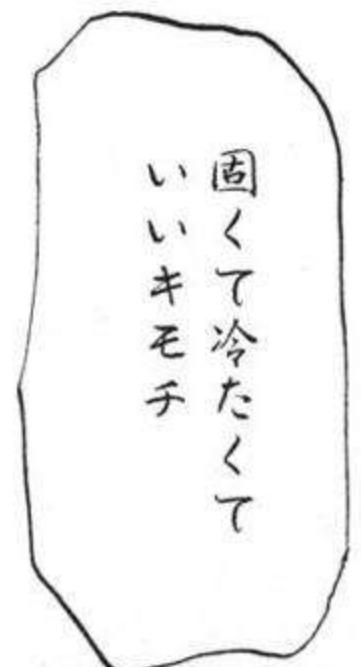 固くて冷たくて
いいキモチ